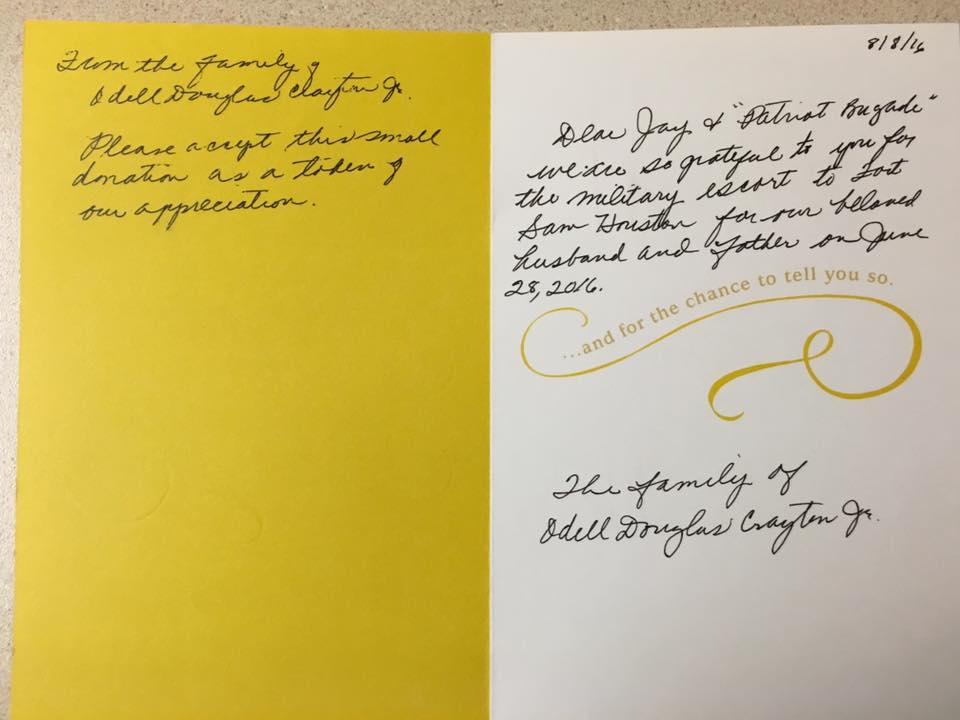 From the family of
Odell Douglas Crayton Jr.
Please accept this small
donation as a token of
our appreciation.
8/8/16
Dear Jay & "Patriot Brigade"
we are so grateful to you for
the military escort to Fort
Sam Houston for our beloved
husband and father on June
28, 2016.
...and for the chance to tell you so.
The family of
Odell Douglas Crayton Jr.